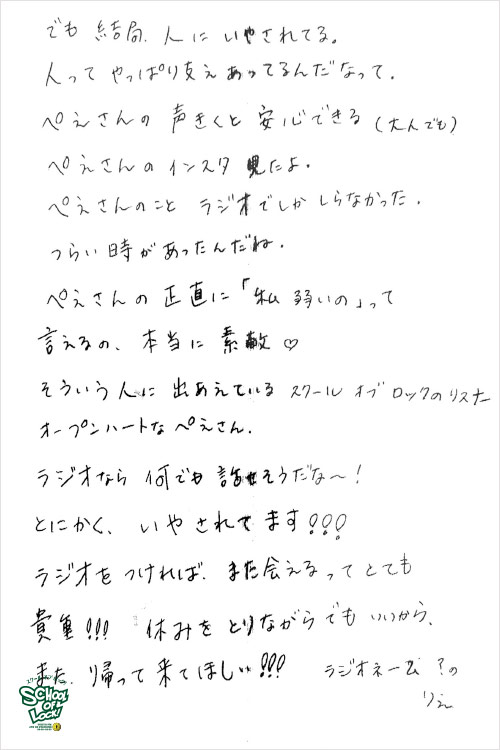 でも 結局、人に いやされてる。
人って やっぱり支え あってるんだなって。
ぺえさんの 声きくと 安心できる (大人でも)
ぺえさんの インスタ 見たよ。
ぺえさんのこと ラジオでしか しらなかった。
つらい 時が あったんだね。
ぺえさんの 正直に「私 弱いの」って
言えるの、本当に 素敵 ♡
そういう 人に 出あえている スクール オブ ロックの リスナー
オープンハートな ぺえさん。
ラジオなら 何でも 話せそうだな〜!
とにかく、いやされてます!!!
ラジオを つければ、また会えるって とても
貴重!!! 休みを とりながらでも いいから、
また、帰って 来てほしい!!! ラジオネーム ?の
りえ
SCHOOL
OF
LOCK!